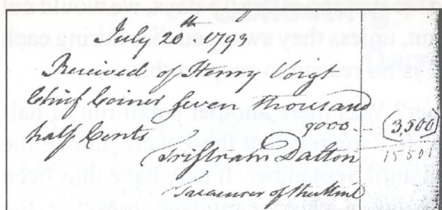 July 20th 1793
Received of Henry Voigt
Chief Coiner seven thousand
half Cents 7000 (3,500)
Tristram Dalton 15501
Treasurer of the Mint